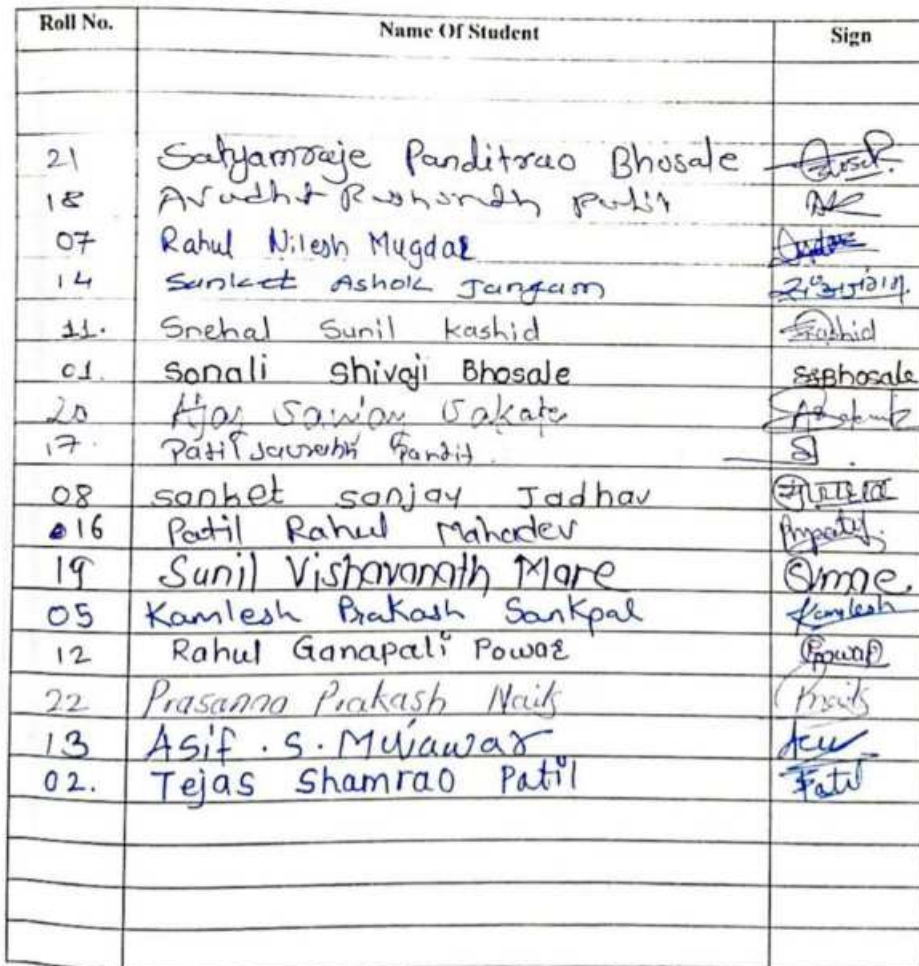 Roll No. Name Of Student Sign
21 Satyamraje Panditrao Bhosale
18 Patil
07 Rahul Nilesh Mugdal
14 Sanket Ashok Jangam
11. Snehal Sunil Kashid Kashid
01. Sonali Shivaji Bhosale SSBhosale
20
17. Patil Saurabh Pandit
08 sanket sanjay Jadhav
16 Patil Rahul Mahadev
19 Sunil Vishavanath More
05 Kamlesh Prakash Sankpal Kamlesh
12 Rahul Ganapati Powar Powar
22 Prasanna Prakash Naik
13 Asif . S . Mujawar
02. Tejas Shamrao Patil Patil